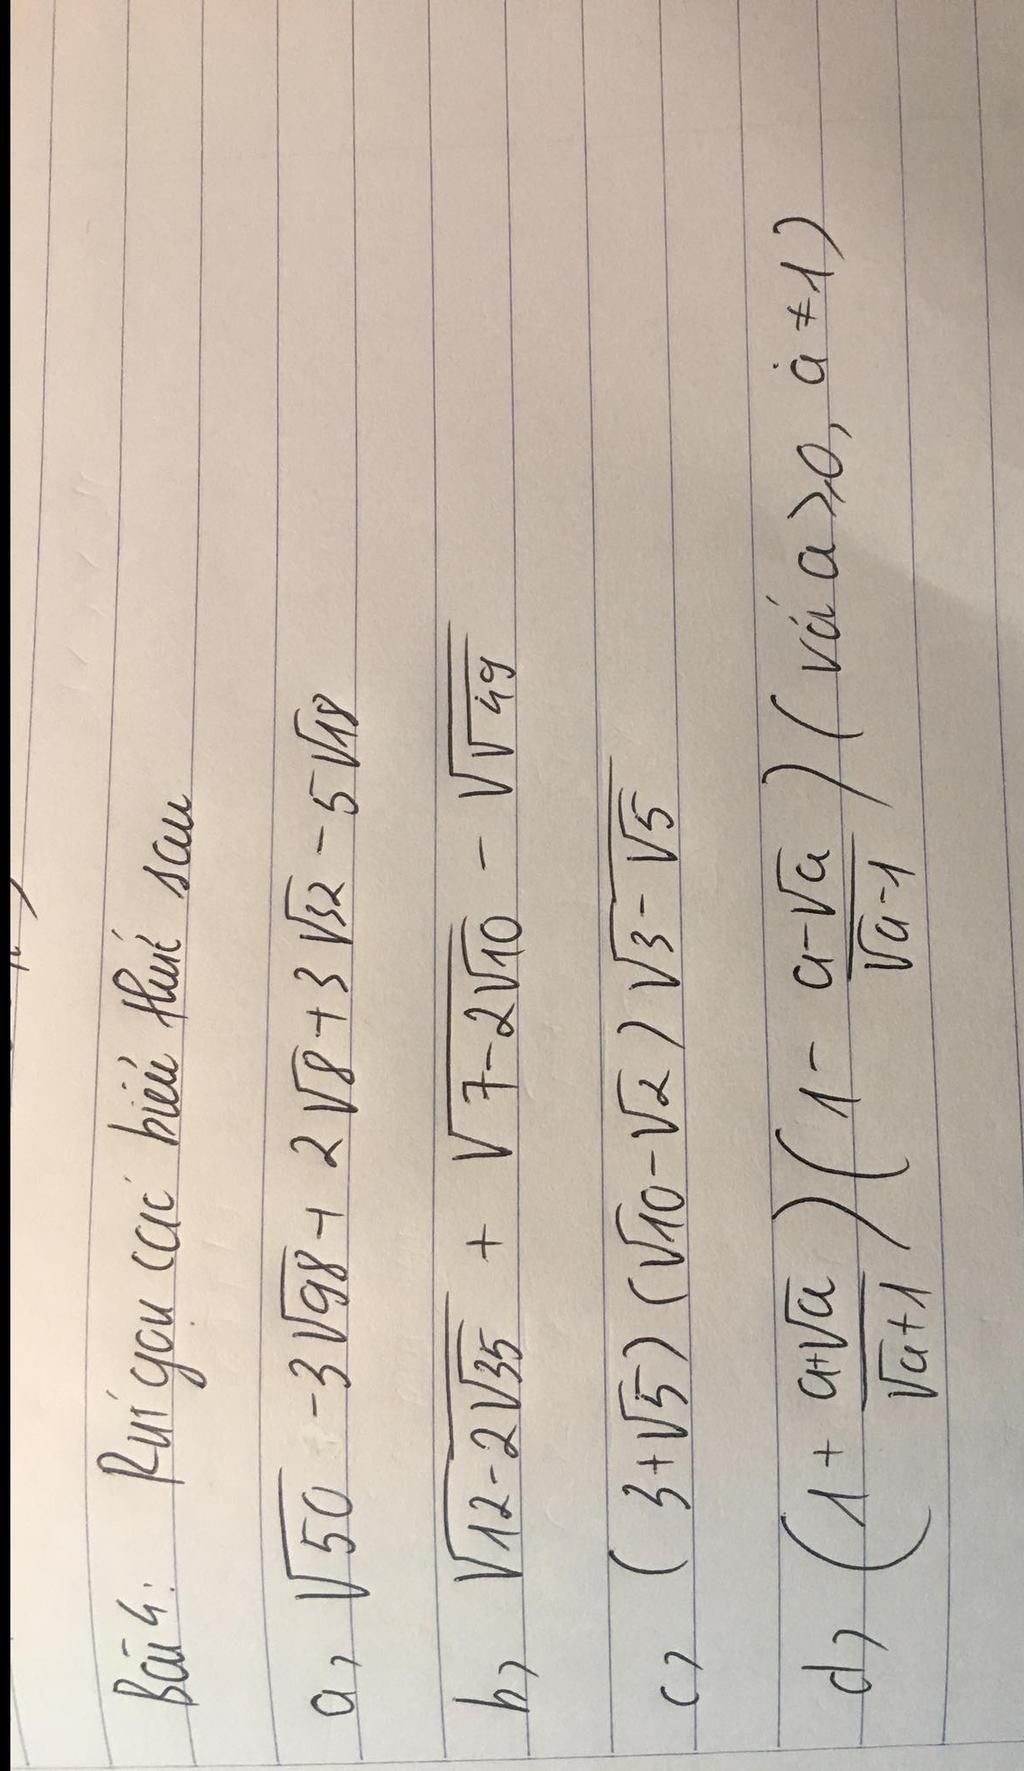 Bài 4: Rút gọn các biểu thức sau
a, √50 - 3√98 + 2√8 + 3√32 - 5√18
b, √(12-2√35) + √(7-2√10) - √(√49)
c, (3+√5)(√10-√2)√(3-√5)
d, (1 + (a+√a)/(√a+1))(1 - (a-√a)/(√a-1)) (vá a ≥ 0, a ≠ 1)